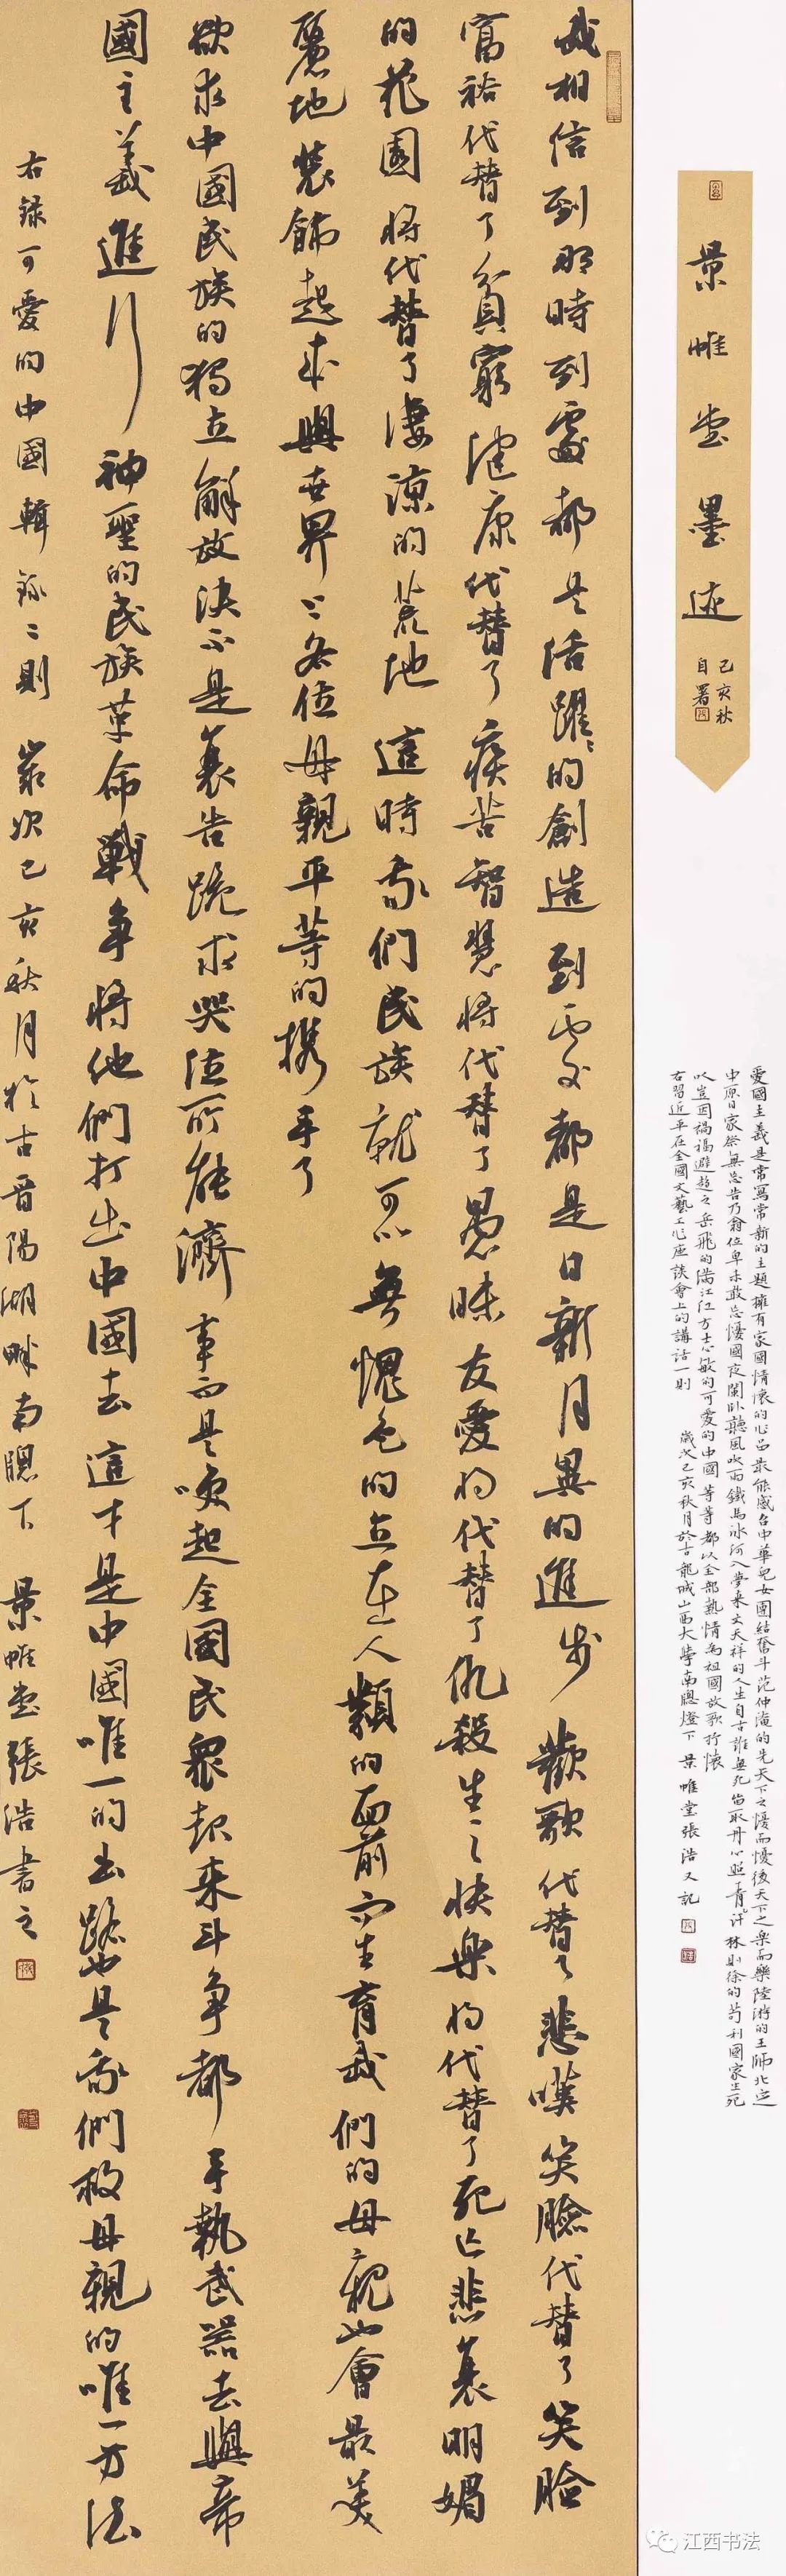 景帷堂墨迹
己亥秋
自署
愛國主義是常寫常新的主題擁有家國情懷的作品最能感召中華兒女團結奮斗范仲淹的先天下之憂而憂後天下之樂而樂陸游的王師北定
中原日家祭無忘告乃翁位卑未敢忘憂國夜闌卧聽風吹雨鐵馬冰河入夢来文天祥的人生自古誰無死留取丹心照汗青林則徐的苟利國家生死
以豈因禍福避趨之岳飛的滿江红方志敏的可愛的中國等等都以全部熱情為祖國放歌抒懷
右習近平在全國文藝工作座談會上的講話一則 歲次己亥秋月於古龍城山西大學南牕燈下景帷堂張浩又記
我相信到那時到處都是活躍々的創造到處都是日新月異的進步歡歌代替了悲嘆笑臉代替了笑臉
富裕代替了貧窮健康代替了疾苦智慧將代替了愚昧友愛將代替了仇殺生之快樂將代替了死亡悲哀明媚
的花園將代替了淒涼的荒地這時我們民族就可以無愧色的立在人類的面前而生育我們的母親也會最美
麗地裝飾起来與世界上各位母親平等的攜手了
欲求中國民族的獨立解放決不是哀告跪求哭泣所能濟事而是喚起全國民衆起来斗争都手執武器去與帝
國主義進行神聖的民族革命戰争將他們打出中國去這才是中國唯一的出路也是我們救母親的唯一方法
右錄可愛的中國輯錄二則 歲次己亥秋月於古晉陽湖畔南牕下 景帷堂張浩書之
江西书法